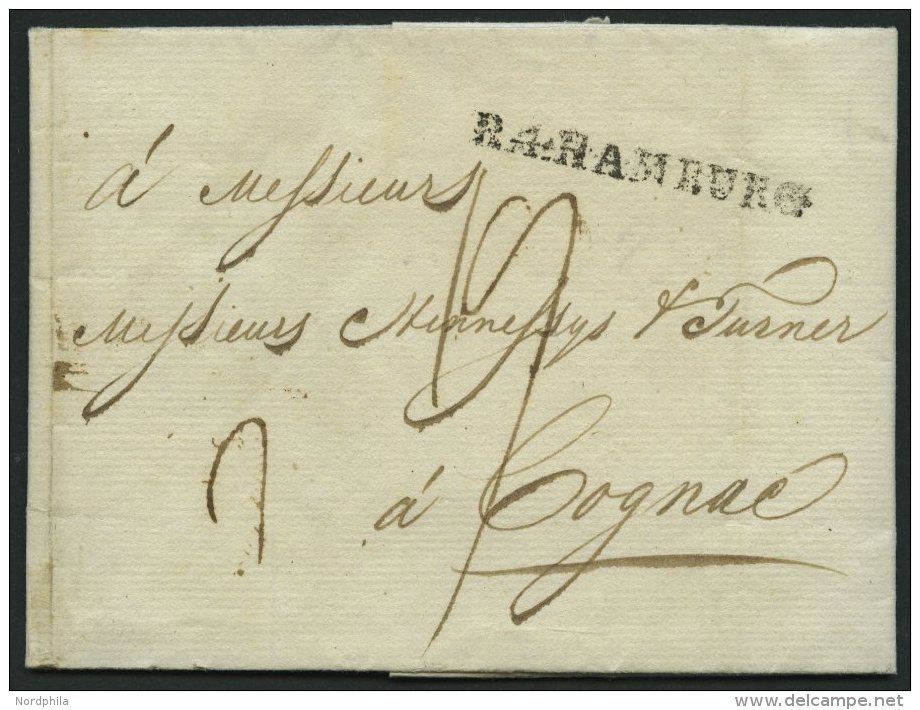 R.4.HAMBURG
á Messieurs
Messieurs Hennessys & Turner
á Cognac
Nordphila
www.delcampe.net